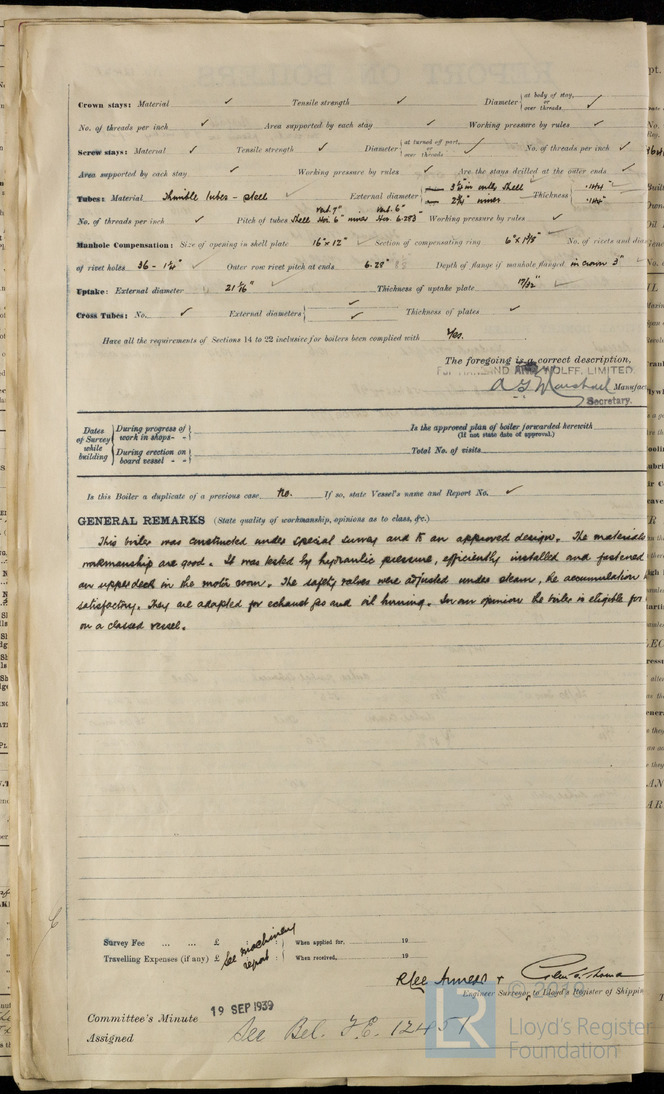 Crown stays: Material ✓ Tensile strength ✓ Diameter { at body of stay, or over threads ✓
No. of threads per inch ✓ Area supported by each stay ✓ Working pressure by rules ✓
Screw stays: Material ✓ Tensile strength ✓ Diameter { at turned off part, or over threads ✓ No. of threads per inch ✓
Area supported by each stay ✓ Working pressure by rules ✓ Are the stays drilled at the outer ends ✓
Tubes: Material Thimble tubes - steel ✓ External diameter { Thickness
No. of threads per inch ✓ Pitch of tubes Shell Vert. 7" Hor. 6" inner Vert. 6" Hor. 6.283" Working pressure by rules ✓
Manhole Compensation: Size of opening in shell plate 16" x 12" ✓ Section of compensating ring ✓ No. of rivets and
of rivet holes 36 - ✓ Outer row rivet pitch at ends 6.28" Depth of flange if manhole flanged in crown 3"
Uptake: External diameter ✓ Thickness of uptake plate 17/32" ✓
Cross Tubes: No. ✓ External diameters { ✓ ✓ Thickness of plates ✓
Have all the requirements of Sections 14 to 22 inclusive for boilers been complied with Yes.
The foregoing is a correct description,
FOR HARLAND AND WOLFF, LIMITED.
Secretary.
Dates of Survey while building { During progress of work in shops - - } Is the approved plan of boiler forwarded herewith (If not state date of approval.)
During erection on board vessel - - } Total No. of visits
Is this Boiler a duplicate of a previous case No. If so, state Vessel's name and Report No. ✓
GENERAL REMARKS (State quality of workmanship, opinions as to class, &c.)
This boiler was constructed under special survey and to an approved design. The materials
workmanship are good. It was tested by hydraulic pressure, efficiently installed and fastened
on upper deck in the motor room. The safety valves were adjusted under steam, the accumulation
satisfactory. They are adapted for exhaust gas and oil burning. In our opinion the boiler is eligible for
on a classed vessel.
Survey Fee ... ... £ See machinery report When applied for, 19
Travelling Expenses (if any) £ When received, 19
Engineer Surveyor to Lloyd's Register of Shipping
© 2019
Committee's Minute 19 SEP 1939
Assigned See Bel. F.E. 12451
LR Lloyd's Register Foundation